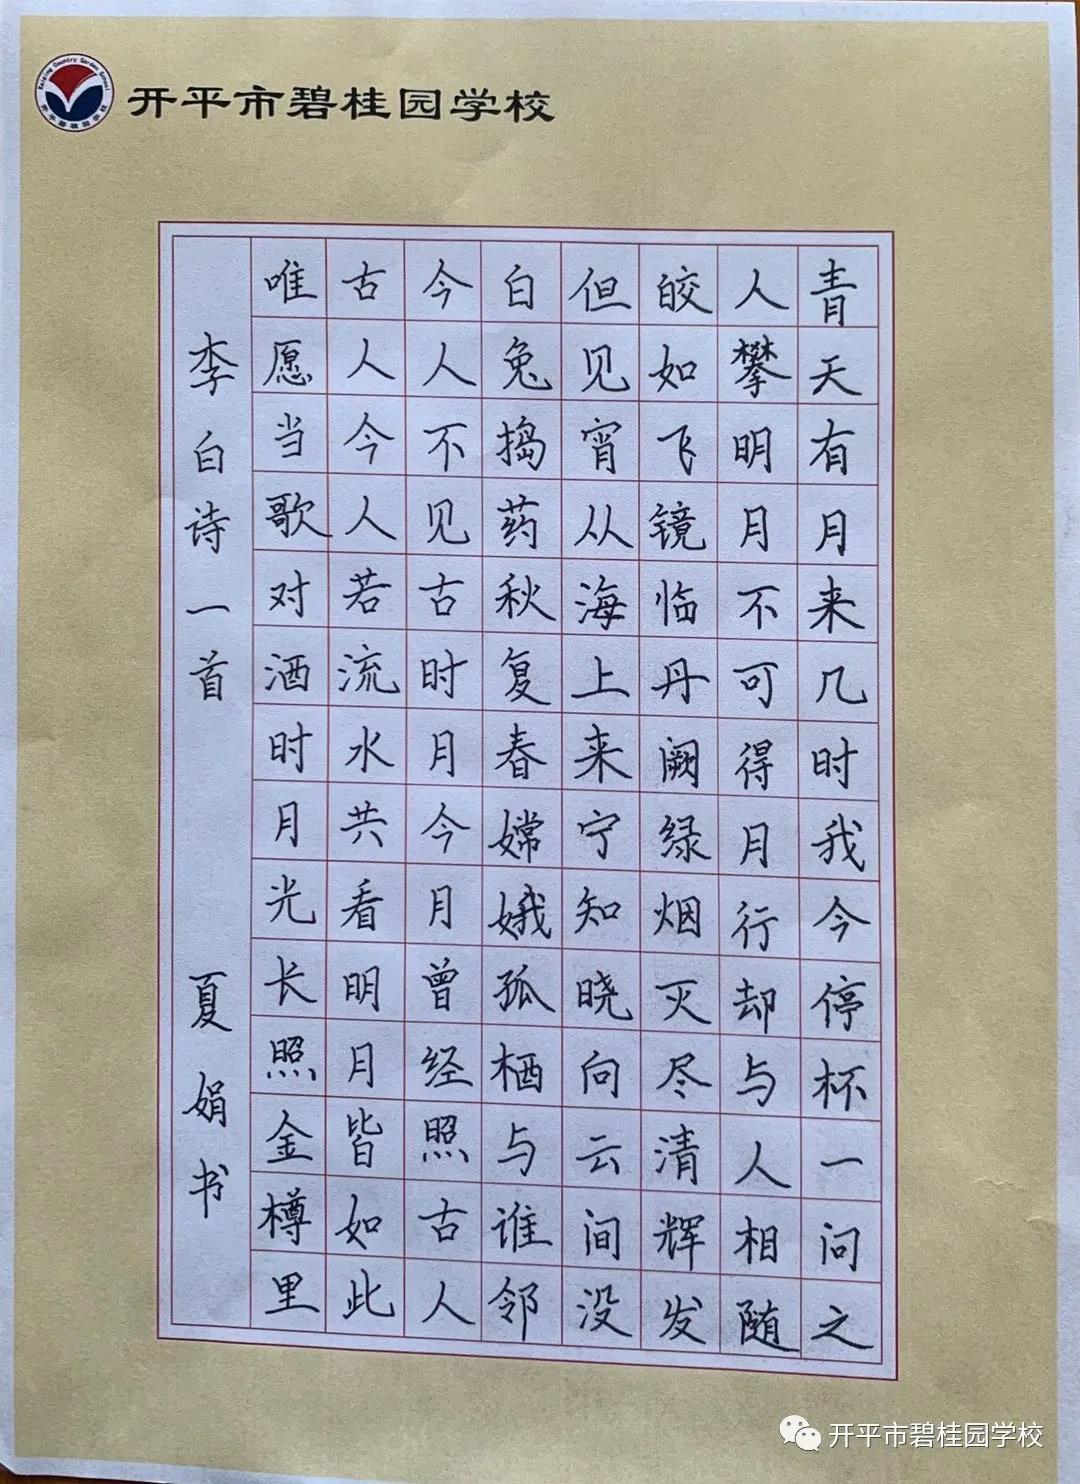 开平市碧桂园学校
Kaiping Country Garden School
开平碧桂园学校
青天有月来几时我今停杯一问之
人攀明月不可得月行却与人相随
皎如飞镜临丹阙绿烟灭尽清辉发
但见宵从海上来宁知晓向云间没
白兔捣药秋复春嫦娥孤栖与谁邻
今人不见古时月今月曾经照古人
古人今人若流水共看明月皆如此
唯愿当歌对酒时月光长照金樽里
李白诗一首 夏娟书
开平市碧桂园学校